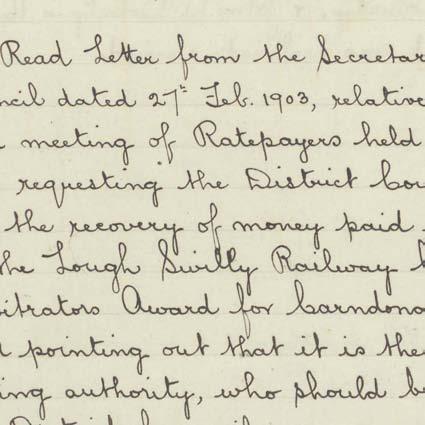 Read Letter from the Secretar
ncil dated 27th Feb. 1903, relative
meeting of Ratepayers held
requesting the District Cou
the recovery of money paid
the Lough Swilly Railway
bitrators Award for Carndona
d pointing out that it is the
ing authority, who should be